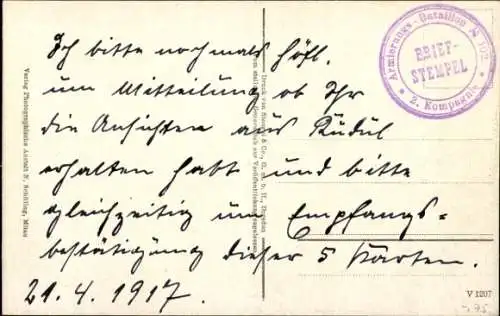 Ich bitte nochmals höfl.
um Mitteilung ob Ihr
die Ansichten aus
erhalten habt und bitte
gleichzeitig um Empfangs-
bestätigung dieser 5 Karten.
21.4.1917.
Armierungs-Bataillon № 102
BRIEF-
STEMPEL
* 2. Kompagnie *
V 1207